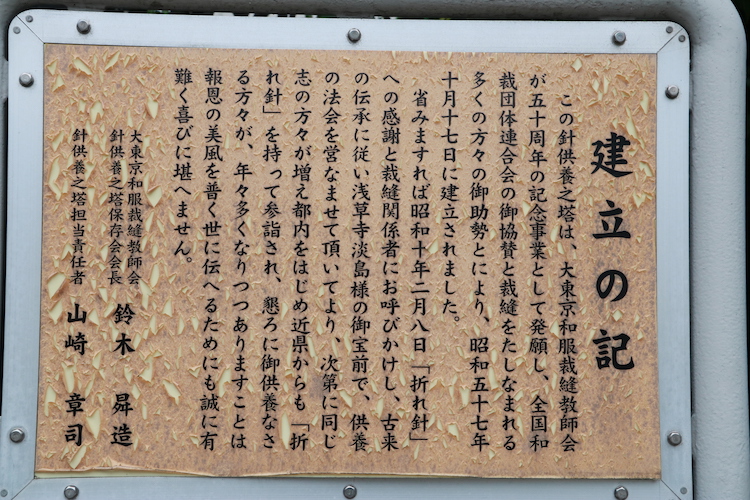 建立の記
この針供養之塔は、大東京和服裁縫教師会
が五十周年の記念事業として発願し、全国和
裁団体連合会の御協賛と裁縫をたしなまれる
多くの方々の御助勢とにより、昭和五十七年
十月十七日に建立されました。
省みますれば昭和十年二月八日「折れ針」
への感謝と裁縫関係者にお呼びかけし、古来
の伝承に従い浅草寺淡島様の御宝前で、供養
の法会を営なませて頂いてより、次第に同じ
志の方々が増え都内をはじめ近県からも「折
れ針」を持って参詣され、懇ろに御供養なさ
る方々が、年々多くなりつつありますことは
報恩の美風を普く世に伝へるためにも誠に有
難く喜びに堪へません。
大東京和服裁縫教師会
針供養之塔保存会会長 鈴木 昇造
針供養之塔担当責任者 山崎 章司